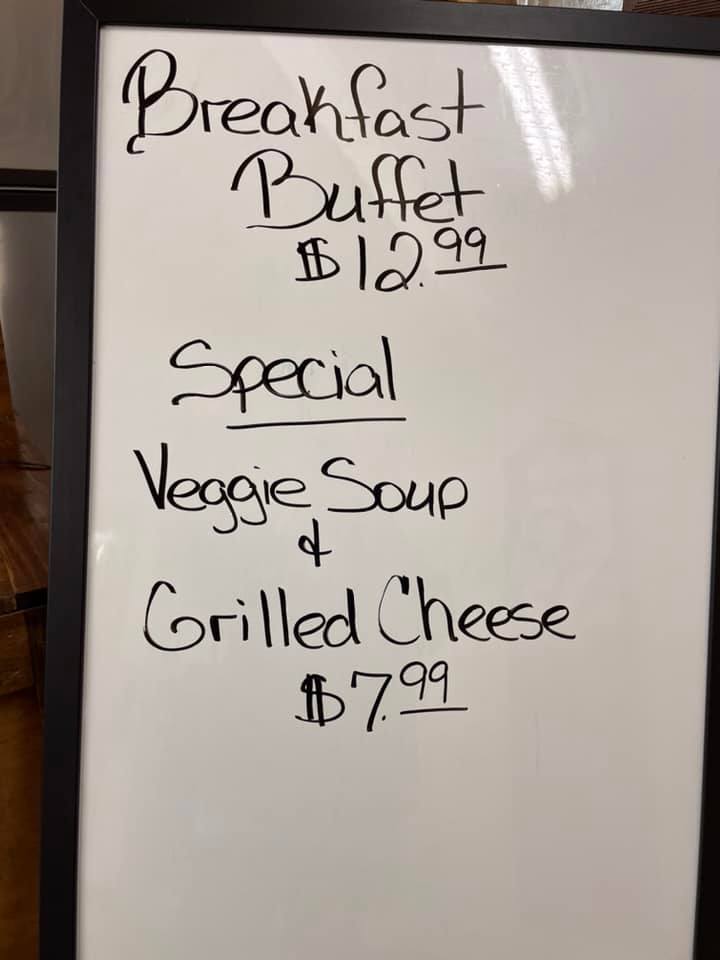 Breakfast
Buffet
$12.99
Special
Veggie Soup
&
Grilled Cheese
$7.99